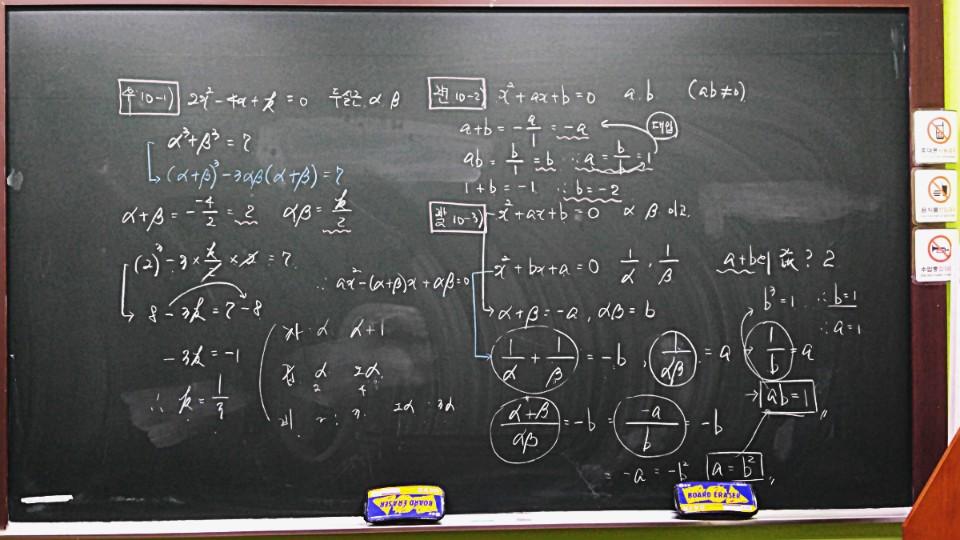 10-1) 2x² - 4x + k = 0 두 실근 α β
α³+β³ = 7
(α+β)³ - 3αβ(α+β) = 7
α+β = - -4/2 = 2 αβ = k/2
(2)³ - 3 × k/2 × 2 = 7
8 - 3k = 7 - 8
- 3k = -1
∴ k = 1/3
∴ ax² - (α+β)x + αβ = 0
차 α α+1
α 2α
2 4
비 2 : 3 2α : 3α
10-2) x² + ax + b = 0 a. b (ab≠0)
a+b = - a/1 = -a
대입
ab = b/1 = b ∴ a = b/b = 1
1 + b = -1 ∴ b = -2
10-3) x² + ax + b = 0 α β 이고,
x² + bx + a = 0 1/α , 1/β a+b의 값? 2
α+β = -a , αβ = b
b³ = 1 ∴ b = 1
∴ a = 1
1/α + 1/β = -b , 1/αβ = a 1/b = a
→ ab = 1
α+β/αβ = -b = -a/b = -b
= -a = -b² a = b²
BOARD ERASER
BOARD ERASER